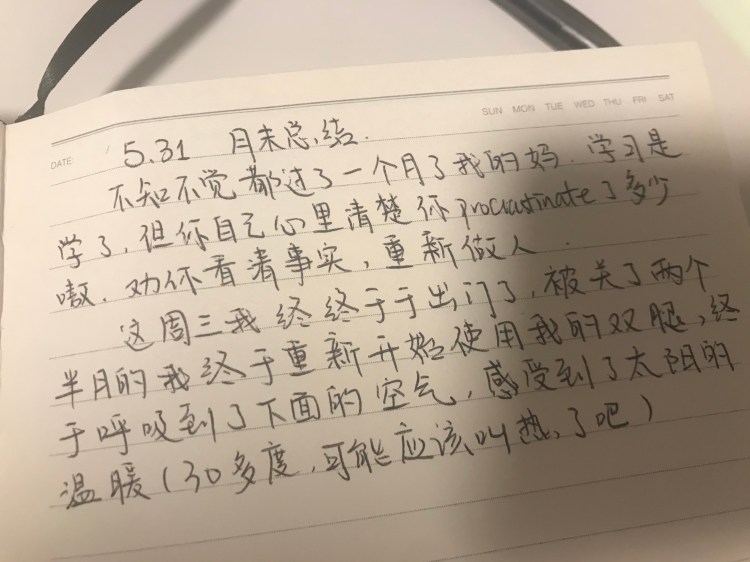 SUN MON TUE WED THU FRI SAT
DATE /
5.31 月末总结.
不知不觉都过了一个月了我的妈.学习是
学了,但你自己心里清楚你procrastinate了多少
嗷.劝你看清事实,重新做人.
这周三我终终于于出门了,被关了两个
半月的我终于重新开始使用我的双腿,终
于呼吸到了下面的空气,感受到了太阳的
温暖(30多度,可能应该叫热了吧)